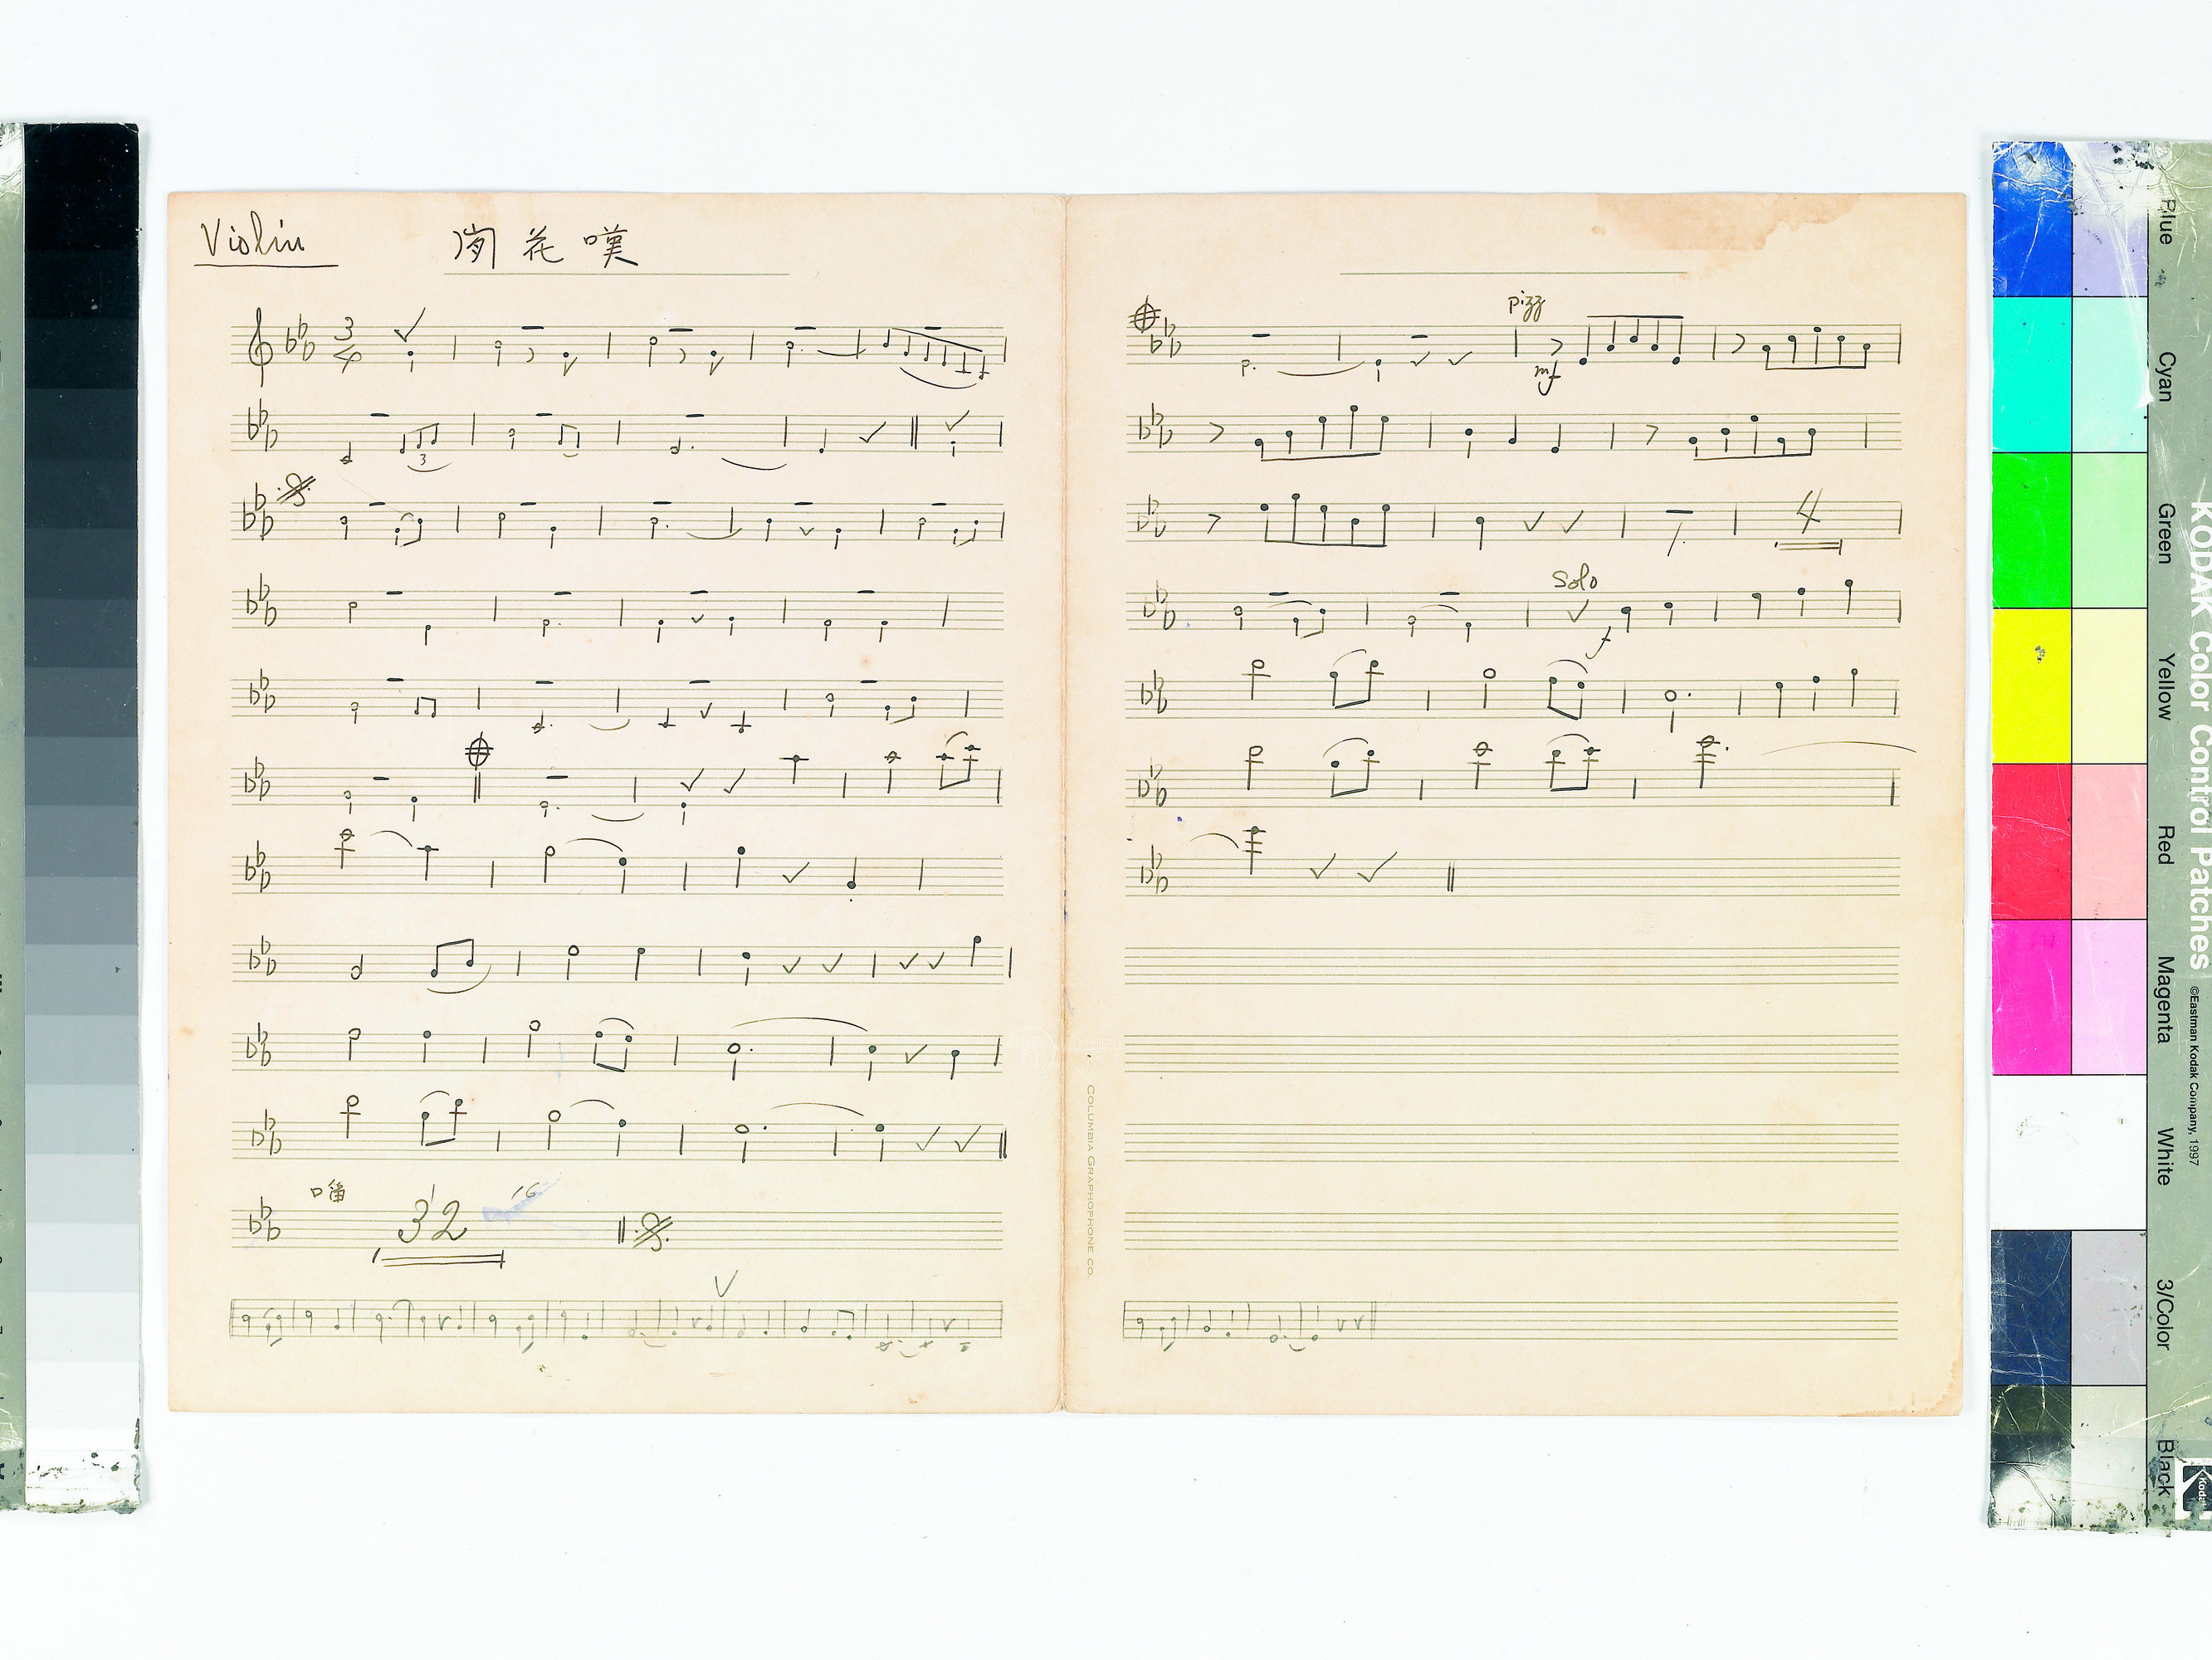 Violin
花嘆
3
4
3
唱
32
16
pizz
mf
4
Solo
f
COLUMBIA GRAPHOPHONE CO.
Blue
Cyan
Green
Yellow
Red
Magenta
White
3/Color
Black
KODAK Color Control Patches
©Eastman Kodak Company, 1997
Kodak